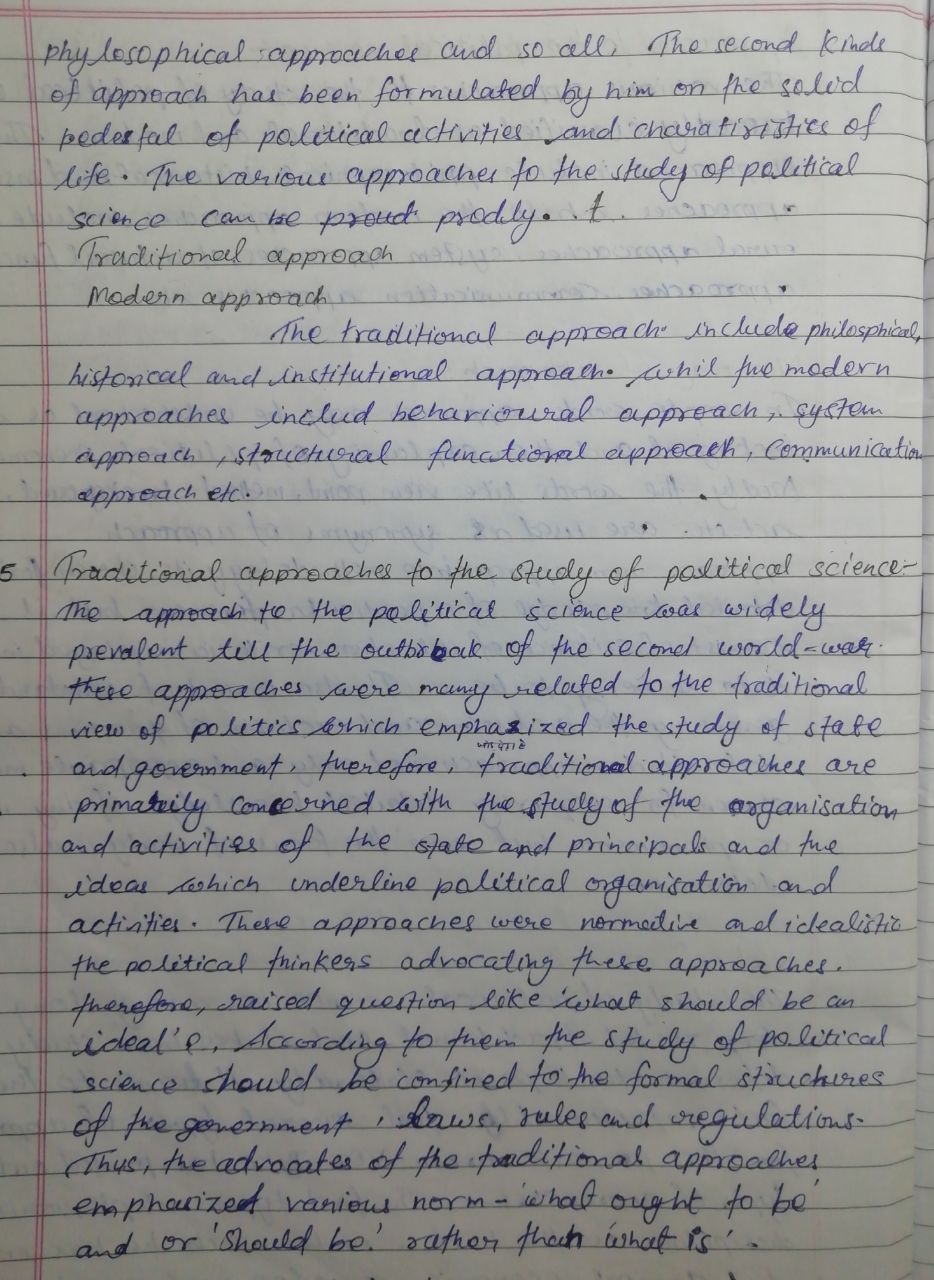 phylosophical approaches and so all. The second kinds
of approach has been formulated by him on the solid
pedestal of political activities and charatiristics of
life. The various approaches to the study of political
science can be proud prodly. t.
Traditional approach
Modern approach
The traditional approach include philosphical,
historical and institutional approach. whil the modern
approaches includ behavioural approach, system
approach, structural functional approach, communication
approach etc.
5 Traditional approaches to the study of political science:-
The approach to the political science was widely
prevalent till the outbrbak of the second world-war.
these approaches were many related to the traditional
view of politics which emphasized the study of state
and government, therefore, traditional approaches are
primarily concerned with the study of the organisation
and activities of the state and principals and the
ideas which underline political organisation and
activities. These approaches were normative and idealistic
the political thinkers advocating these approaches.
therefore, raised question like 'what should be an
ideal'e. According to them the study of political
science should be confined to the formal structures
of the government, laws, rules and regulations.
Thus, the advocates of the traditional approaches
emphasized various norm - 'what ought to be'
and or 'should be.' rather than 'what is'.